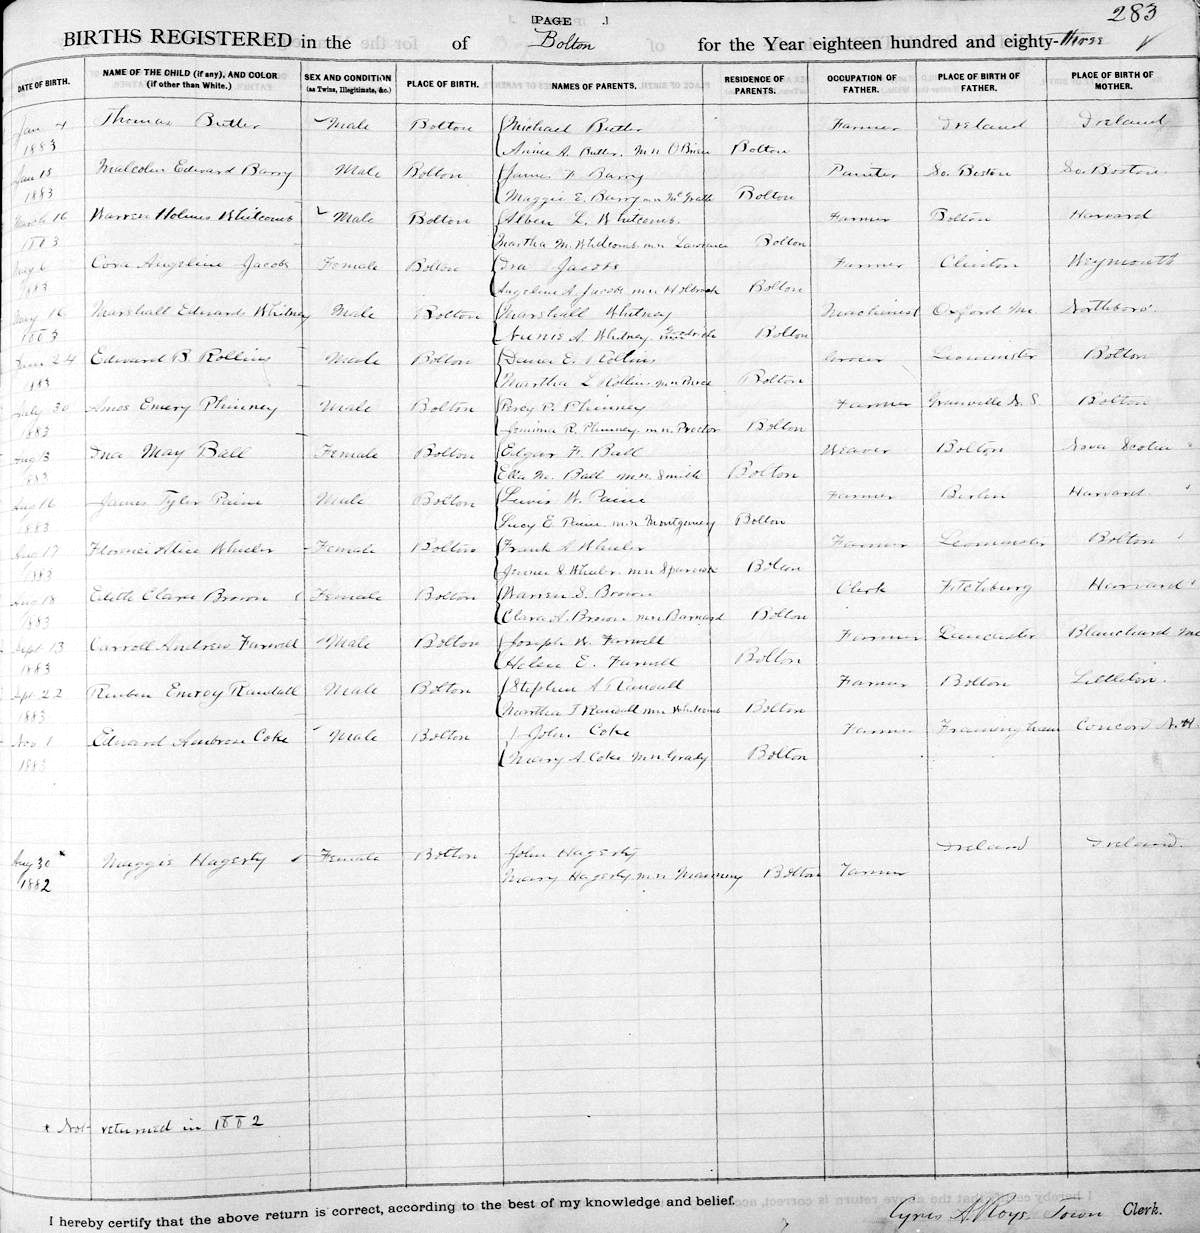 PAGE
283
BIRTHS REGISTERED in the of Bolton for the Year eighteen hundred and eighty-three
DATE OF BIRTH. NAME OF THE CHILD (if any), AND COLOR (if other than White.) SEX AND CONDITION (as Twins, Illegitimate, &c.) PLACE OF BIRTH. NAMES OF PARENTS. RESIDENCE OF PARENTS. OCCUPATION OF FATHER. PLACE OF BIRTH OF FATHER. PLACE OF BIRTH OF MOTHER.
Jan 4 Thomas Butler Male Bolton Michael Butler Farmer Ireland Ireland
1883 Annie A. Butler. m n O'Brien Bolton
Jan 18 Malcolm Edward Barry Male Bolton James F. Barry Painter So. Boston So. Boston
1883 Maggie E. Barry m n McGrath Bolton
March 16 Warren Holmes Whitcomb Male Bolton Alben L. Whitcomb. Farmer Bolton Harvard
1883 Martha M. Whitcomb m n Lawrence Bolton
May 6 Cora Angeline Jacobs Female Bolton Ira Jacobs Farmer Clinton Weymouth
1883 Angeline A. Jacobs m n Holbrook Bolton
May 16 Marshall Edward Whitney Male Bolton Marshall Whitney Machinist Oxford Me. Northboro'
1883 A. Whitney m n Bolton
June 24 Edward B. Rollins Male Bolton E. Rollins Leominster Bolton
1883 Martha L. Rollins m n Bolton
July 30 Amos Emery Phinney Male Bolton Percy P. Phinney Farmer Granville N. S. Bolton
1883 Jemima R. Phinney. m n. Proctor Bolton
Aug 3 Ina May Ball Female Bolton Edgar F. Ball Weaver Bolton Nova Scotia
1883 Ella M. Ball m n Smith Bolton
Aug 16 James Tyler Paine Male Bolton Lewis W. Paine Farmer Berlin Harvard
1883 Lucy E. Paine m n Montgomery Bolton
Aug 17 Florence Alice Wheeler Female Bolton Frank A. Wheeler Farmer Leominster Bolton
1883 Jennie S. Wheeler m n Bolton
Aug 18 Edith Clara Brown Female Bolton Warren S. Brown Clerk Fitchburg Harvard
1883 Clara A. Brown m n Barnard Bolton
Sept 13 Carroll Andrew Farwell Male Bolton Joseph W. Farwell Farmer Lancaster Blanchard Me
1883 Helen E. Farwell Bolton
Sept. 22 Reuben Emroy Randall Male Bolton Stephen A. Randall Farmer Bolton Littleton.
1883 Martha J. Randall m n Whitcomb Bolton
Nov 1 Edward Ambrose Coke Male Bolton John Coke Farmer Framingham Concord N. H.
1883 Mary A. Coke m n Grady Bolton
Aug 30 * Maggie Hagerty Female Bolton John Hagerty Ireland Ireland.
1882 Mary Hagerty m n Bolton Farmer
* Not returned in 1882
I hereby certify that the above return is correct, according to the best of my knowledge and belief.
Cyrus A. Town Clerk.